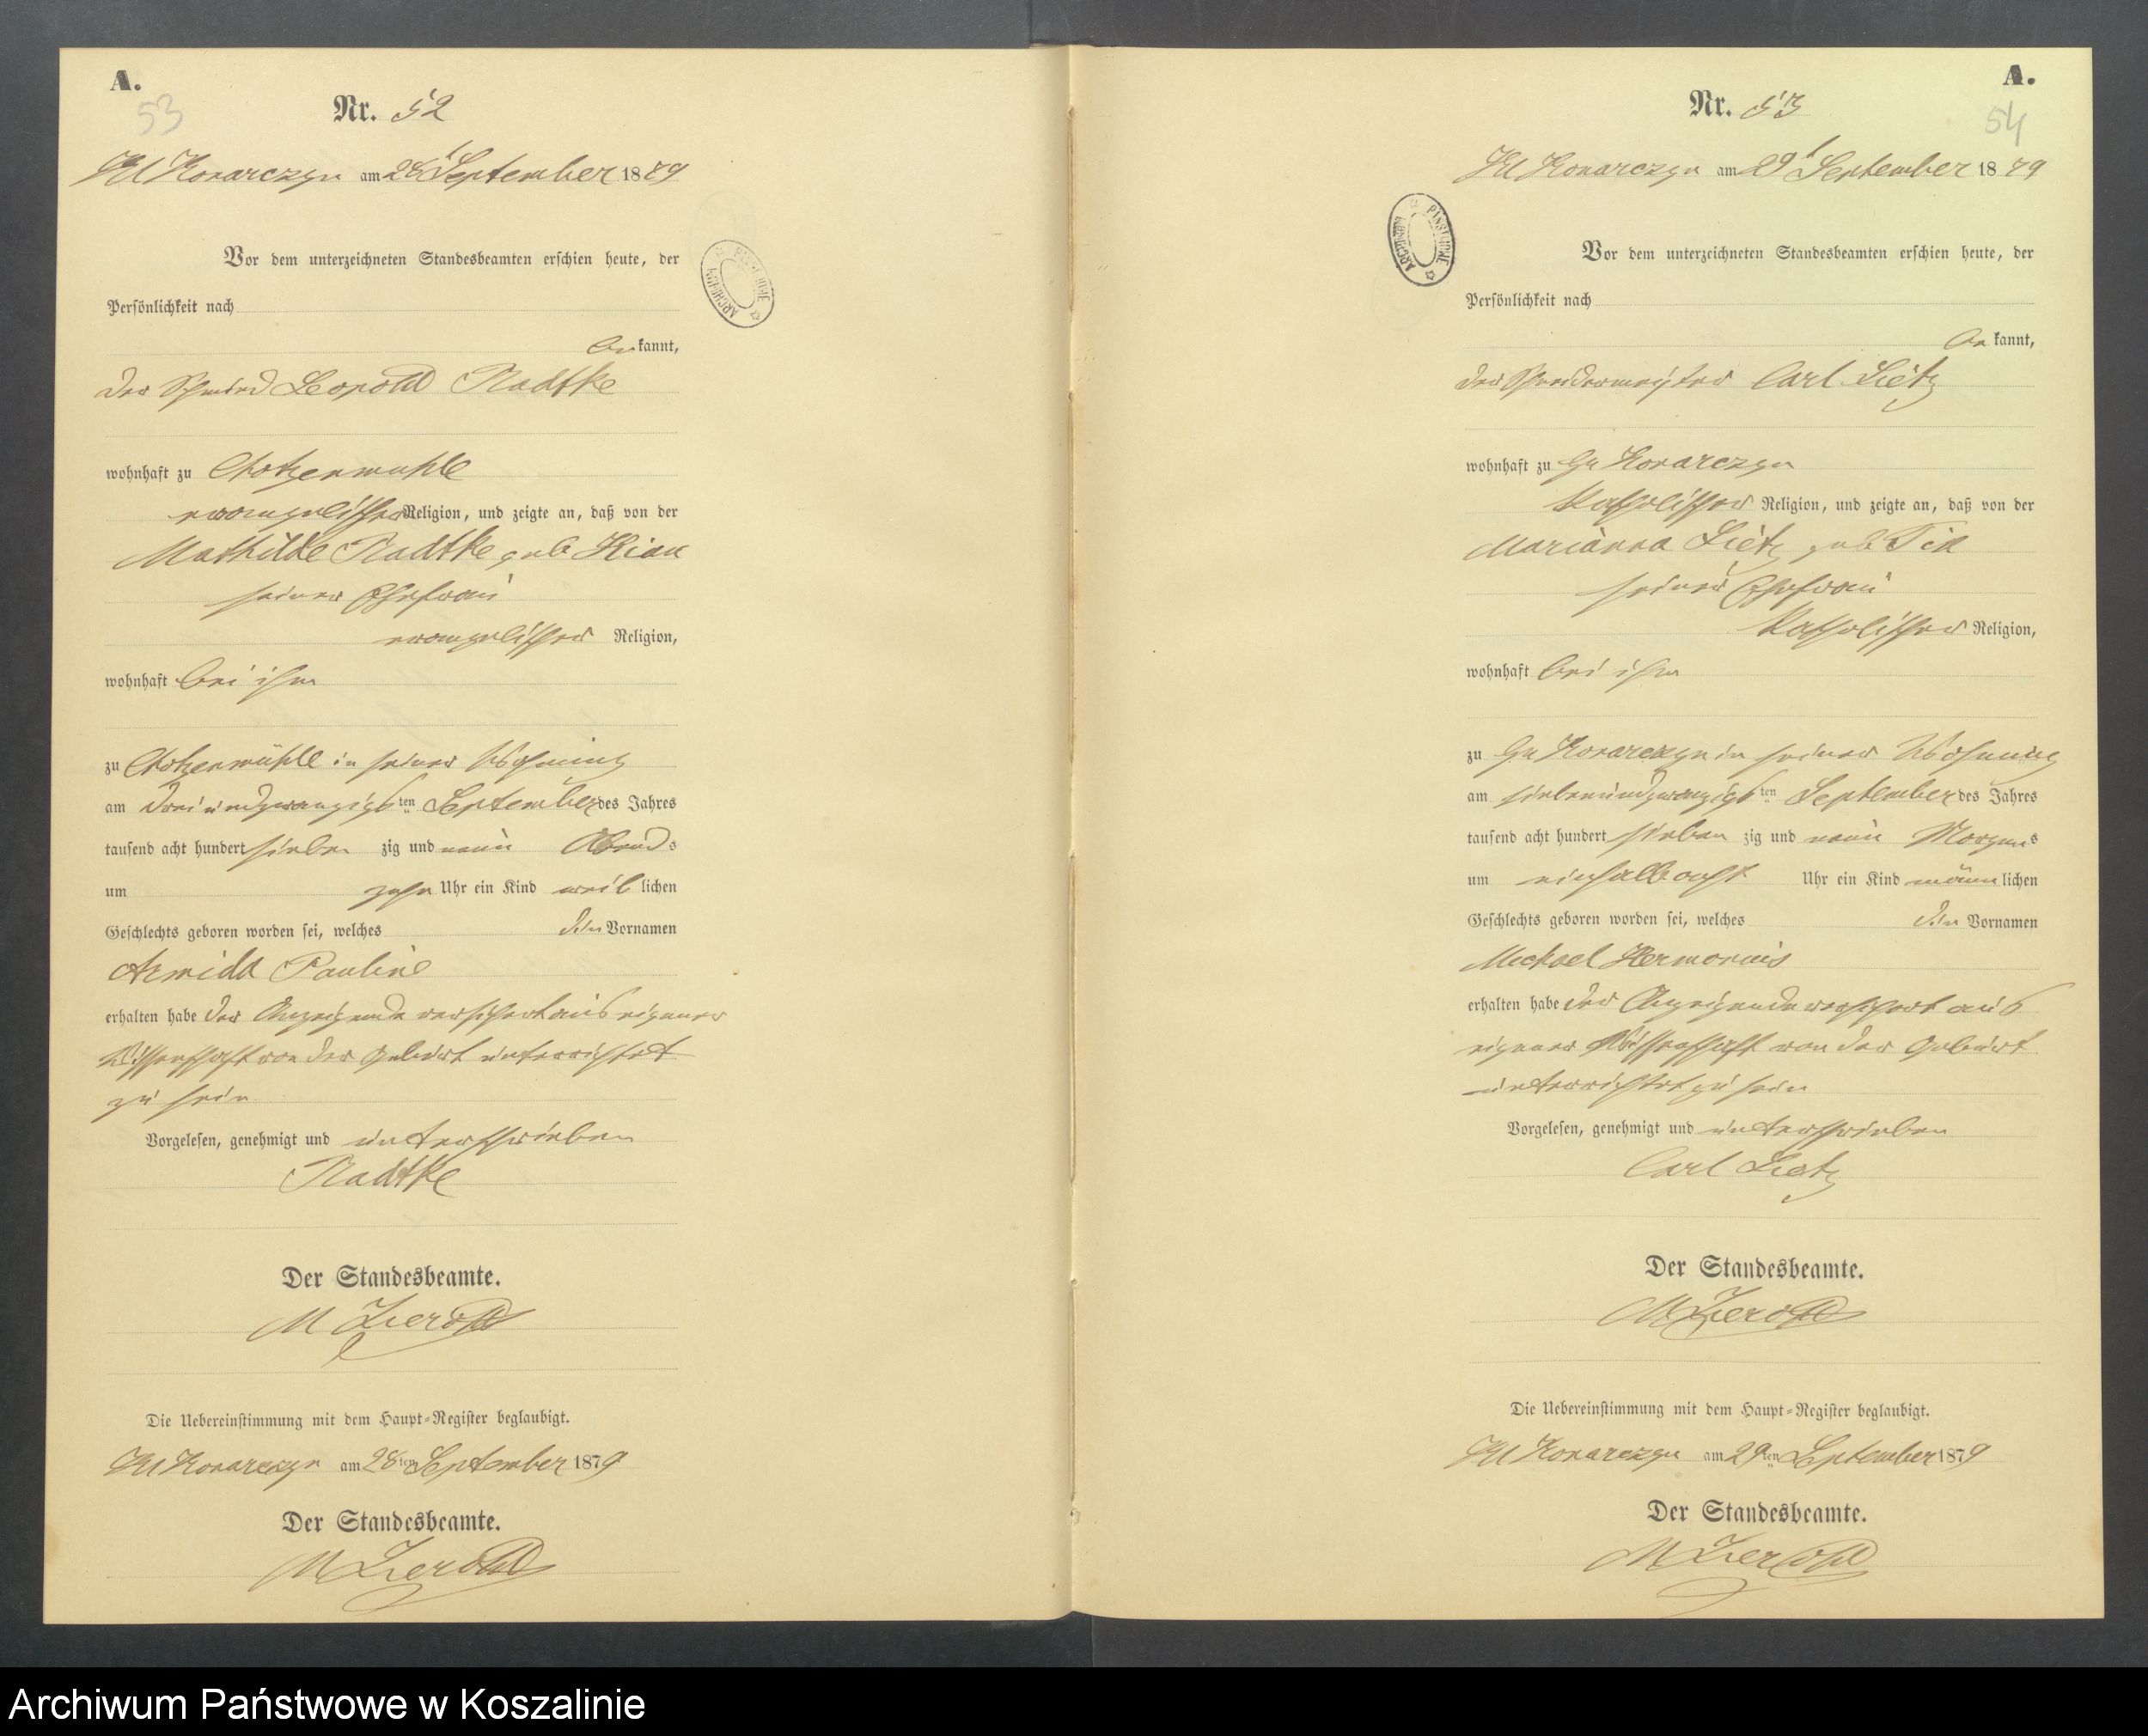 A.
53
Nr. 52
Kl Konarczyn am 28t September 1879
Vor dem unterzeichneten Standesbeamten erschien heute, der
Persönlichkeit nach
bekannt,
der Schmied Leopold Radtke
wohnhaft zu Chotzenmühle
evangelischer Religion, und zeigte an, daß von der
Mathilde Radtke geb
seiner Ehefrau
evangelischer Religion,
wohnhaft bei ihm
zu Chotzenmühle in seiner Wohnung
am dreiundzwanzigsten September des Jahres
tausend acht hundert siebenzig und neun Abends
um zehn Uhr ein Kind weiblichen
Geschlechts geboren worden sei, welches den Vornamen
Armida Pauline
erhalten habe der Anzeigende versichert aus eigener
Wissenschaft von der Geburt unterrichtet
zu sein
Vorgelesen, genehmigt und unterschrieben
Radtke
Der Standesbeamte.
M
Die Uebereinstimmung mit dem Haupt=Register beglaubigt.
Kl Konarczyn am 28ten September 1879
Der Standesbeamte.
M
ARCHIWUM PAŃSTWOWE
A.
54
Nr. 53
Kl Konarczyn am 29t September 1879
Vor dem unterzeichneten Standesbeamten erschien heute, der
Persönlichkeit nach
bekannt,
der Schneidermeister Carl Lietz
wohnhaft zu Gr Konarczyn
katholischer Religion, und zeigte an, daß von der
Marianna Lietz geb
seiner Ehefrau
katholischer Religion,
wohnhaft bei ihm
zu Gr Konarczyn in seiner Wohnung
am siebenundzwanzigsten September des Jahres
tausend acht hundert siebenzig und neun Morgens
um einhalb acht Uhr ein Kind männlichen
Geschlechts geboren worden sei, welches den Vornamen
Michael
erhalten habe der Anzeigende versichert aus
eigener Wissenschaft von der Geburt
unterrichtet zu sein
Vorgelesen, genehmigt und unterschrieben
Carl Lietz
Der Standesbeamte.
M
Die Uebereinstimmung mit dem Haupt=Register beglaubigt.
Kl Konarczyn am 29ten September 1879
Der Standesbeamte.
M
ARCHIWUM PAŃSTWOWE
Archiwum Państwowe w Koszalinie